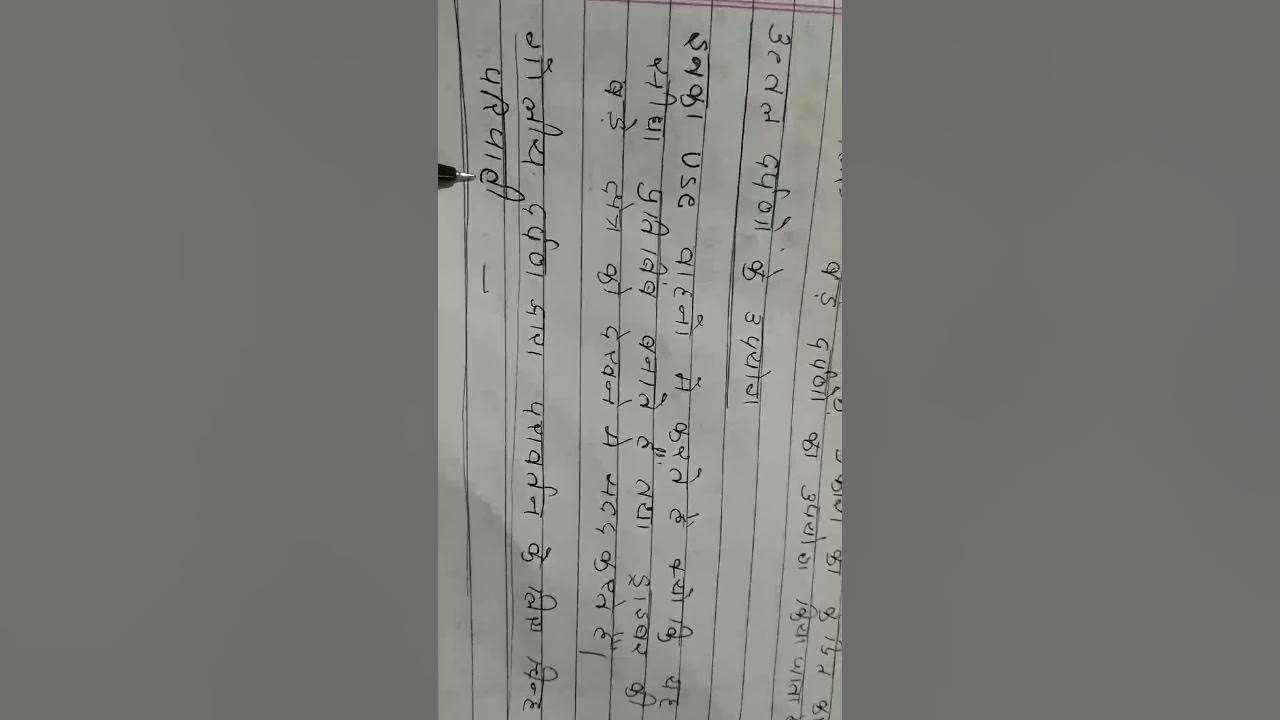 बड़े दर्पणों का उपयोग किया जाता
उत्तल दर्पणों के उपयोग
इनका use वाहनों में करते हैं क्योंकि यह
सीधा प्रतिबिंब बनाते हैं तथा ड्राइवर की
बड़े क्षेत्र को देखने में मदद करते हैं।
गोलीय दर्पण द्वारा परावर्तन के लिए चिन्ह
परिपाटी -